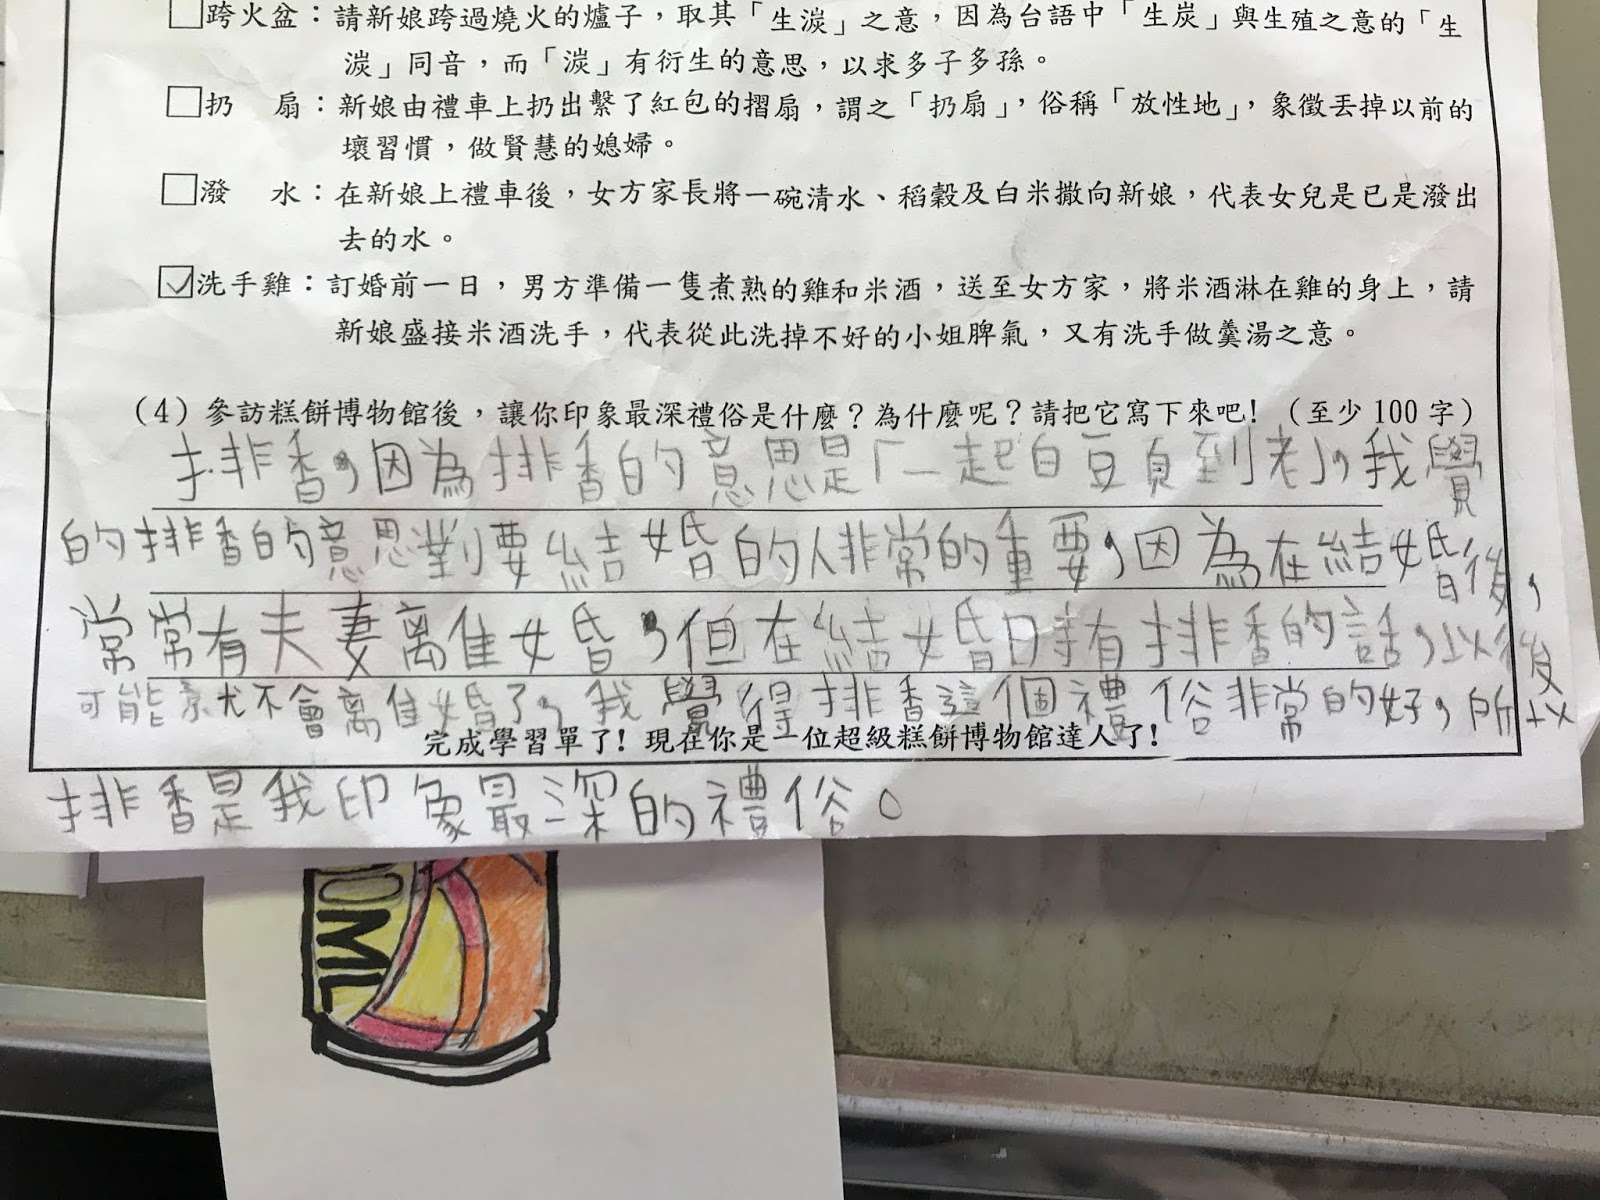 □跨火盆：請新娘跨過燒火的爐子，取其「生湠」之意，因為台語中「生炭」與生殖之意的「生
湠」同音，而「湠」有衍生的意思，以求多子多孫。
□扔　扇：新娘由禮車上扔出繫了紅包的摺扇，謂之「扔扇」，俗稱「放性地」，象徵丟掉以前的
壞習慣，做賢慧的媳婦。
□潑　水：在新娘上禮車後，女方家長將一碗清水、稻穀及白米撒向新娘，代表女兒是已是潑出
去的水。
☑洗手雞：訂婚前一日，男方準備一隻煮熟的雞和米酒，送至女方家，將米酒淋在雞的身上，請
新娘盛接米酒洗手，代表從此洗掉不好的小姐脾氣，又有洗手做羹湯之意。
（4）參訪糕餅博物館後，讓你印象最深禮俗是什麼？為什麼呢？請把它寫下來吧！（至少100字）
排香，因為排香的意思是「一起白頭到老」，我覺
的排香的意思對要結婚的人非常的重要，因為在結婚後，
常常有夫妻離婚，但在結婚時有排香的話，以後
可能就不會離婚了，我覺得排香這個禮俗非常的好，所以
完成學習單了！現在你是一位超級糕餅博物館達人了！
排香是我印象最深的禮俗。
OML